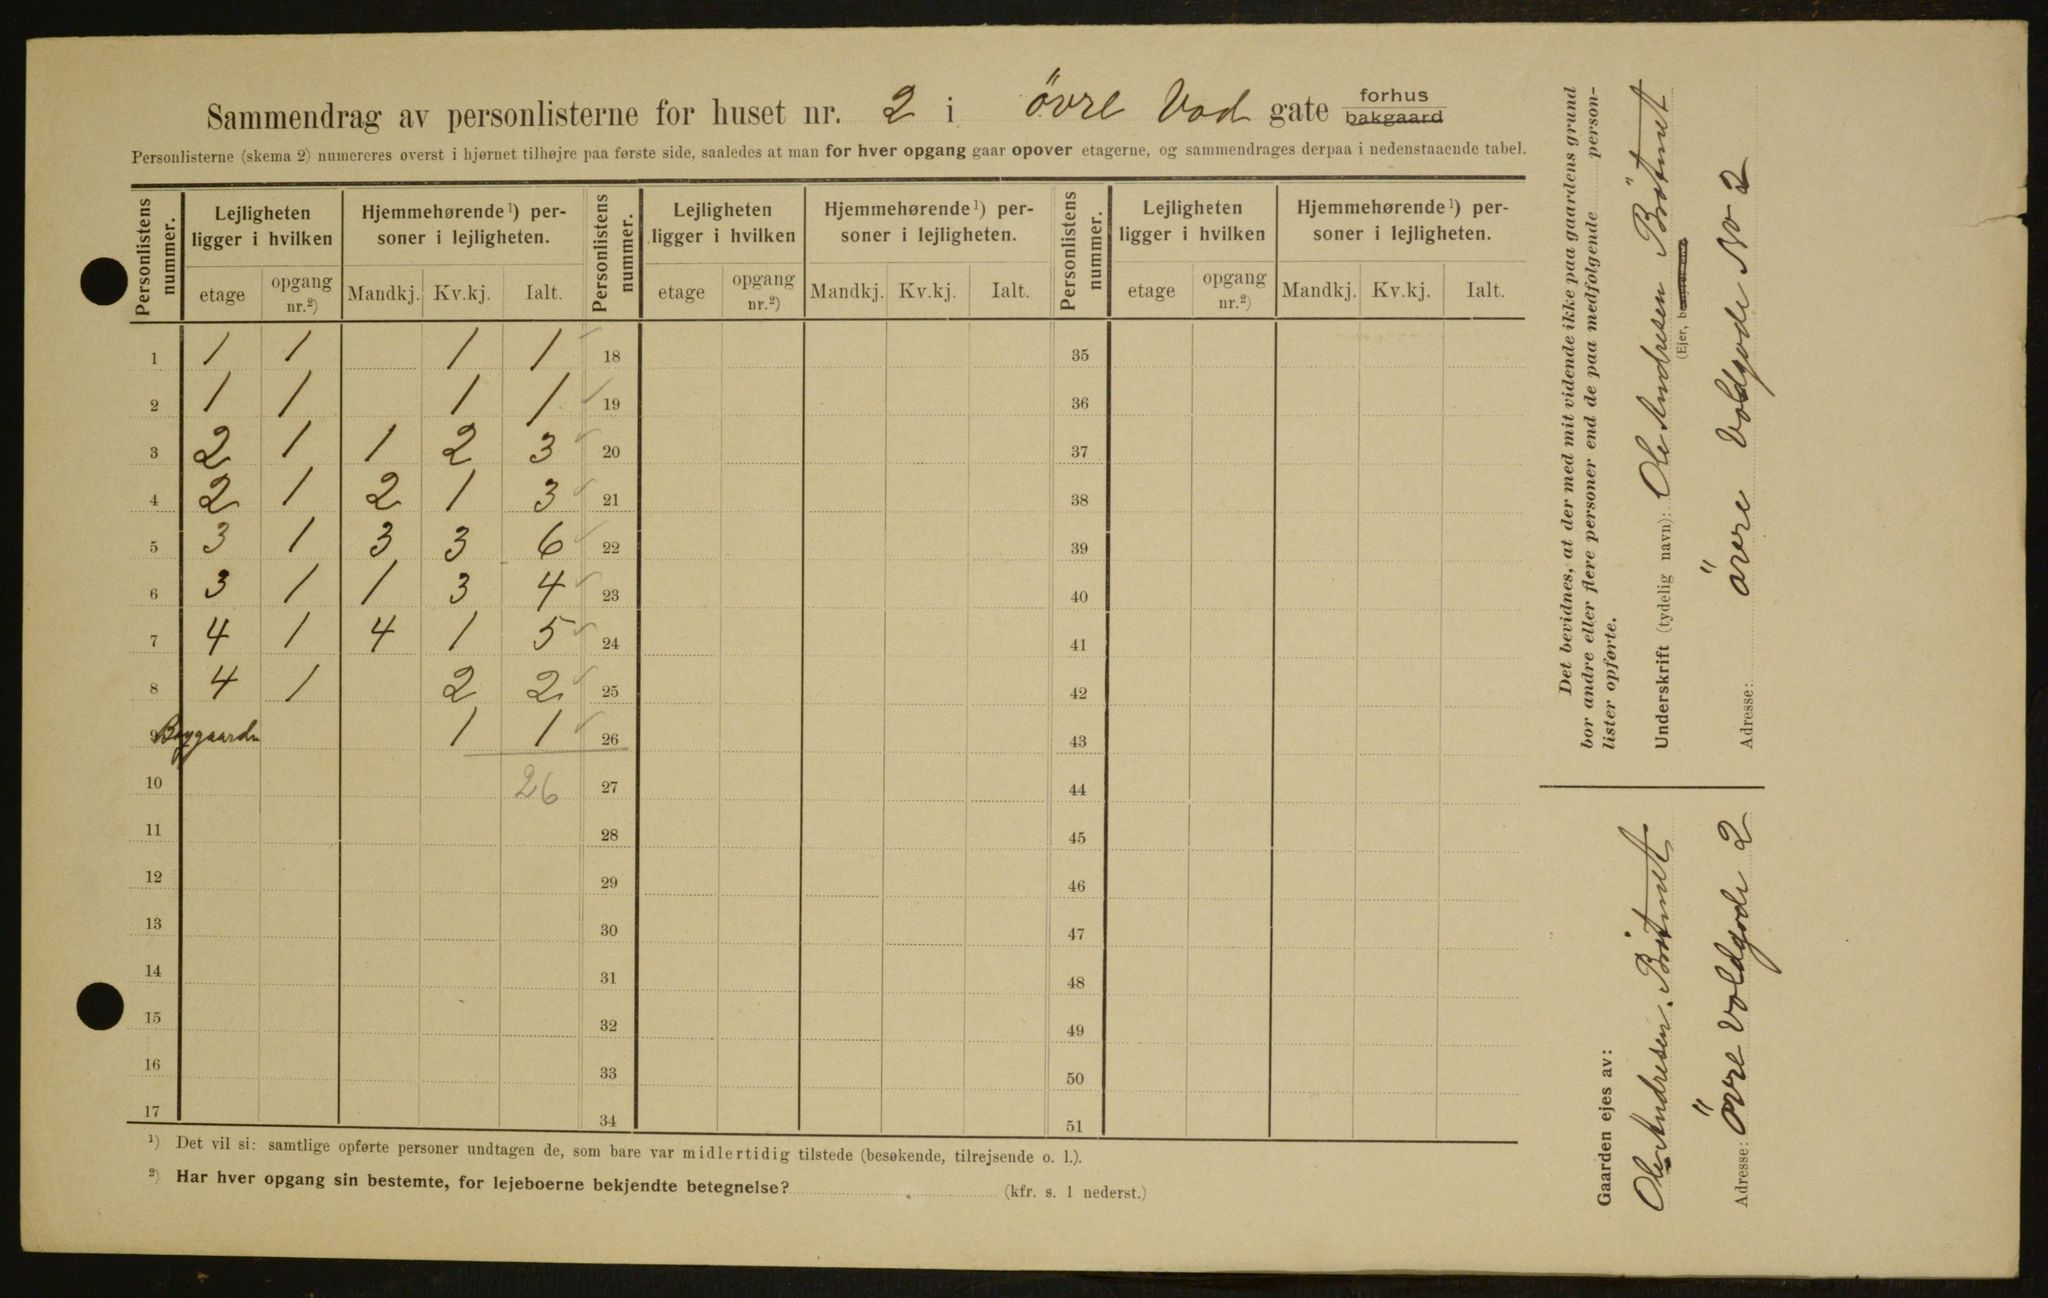 Sammendrag av personlisterne for huset nr. 2 i övre Vod gate forhus bakgaard
Personlisterne (skema 2) numereres øverst i hjørnet tilhøjre paa første side, saaledes at man for hver opgang gaar opover etagerne, og sammendrages derpaa i nedenstaaende tabel.
Personlistens nummer. Lejligheten ligger i hvilken Hjemmehørende ¹) personer i lejligheten. Personlistens nummer. Lejligheten ligger i hvilken Hjemmehørende ¹) personer i lejligheten. Personlistens nummer. Lejligheten ligger i hvilken Hjemmehørende ¹) personer i lejligheten.
etage opgang nr.²) Mandkj. Kv.kj. Ialt. etage opgang nr.²) Mandkj. Kv.kj. Ialt. etage opgang nr.²) Mandkj. Kv.kj. Ialt.
1 1 1 1 1 18 35
2 1 1 1 1 19 36
3 2 1 1 2 3 20 37
4 2 1 2 1 3 21 38
5 3 1 3 3 6 22 39
6 3 1 1 3 4 23 40
7 4 1 4 1 5 24 41
8 4 1 2 2 25 42
9 1 1 26 43
10 26 27 44
11 28 45
12 29 46
13 30 47
14 31 48
15 32 49
16 33 50
17 34 51
¹) Det vil si: samtlige opførte personer undtagen de, som bare var midlertidig tilstede (besøkende, tilrejsende o. l.).
²) Har hver opgang sin bestemte, for lejeboerne bekjendte betegnelse? (kfr. s. 1 nederst.)
Det bevidnes, at der med mit vidende ikke paa gaardens grund
bor andre eller flere personer end de paa medfølgende person-
lister opførte.
Underskrift (tydelig navn): Ole Andresen Bötnet
(Ejer,
Adresse: övre Voldgade No 2
Gaarden ejes av:
Ole Andresen Bötnet
Adresse: Övre Voldgade 2